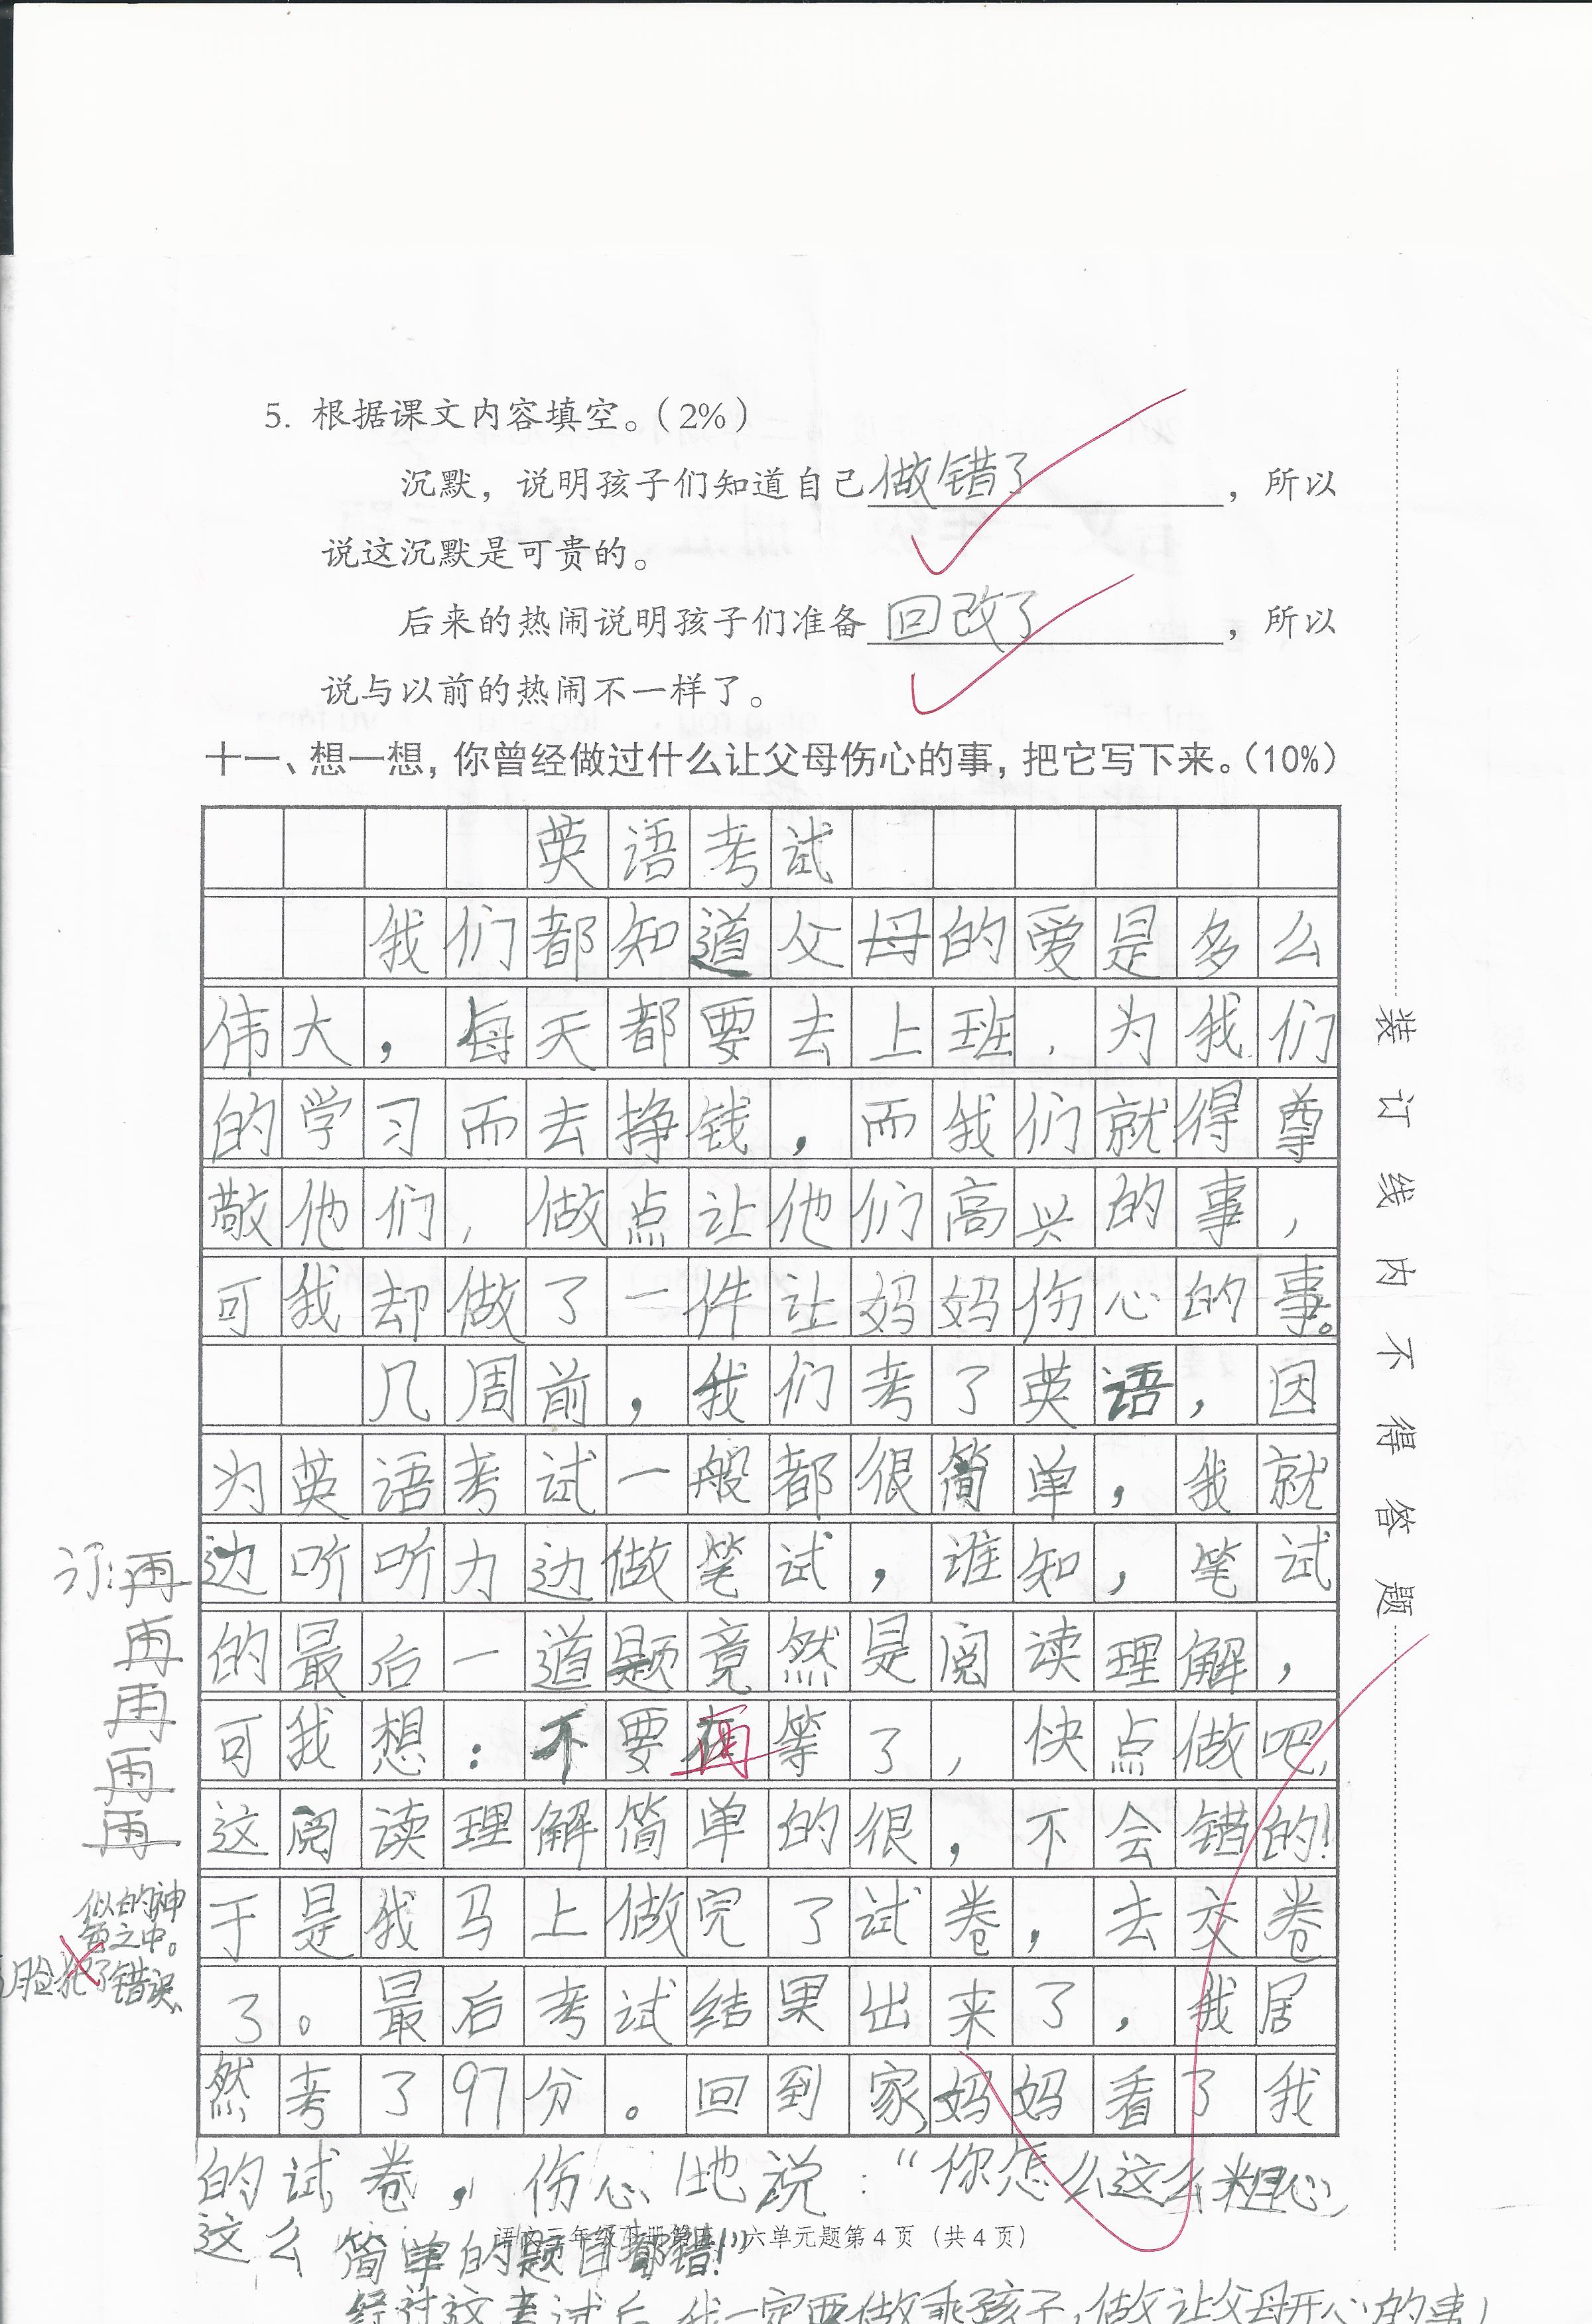 5. 根据课文内容填空。（2%）
沉默，说明孩子们知道自己做错了，所以
说这沉默是可贵的。
后来的热闹说明孩子们准备回改了，所以
说与以前的热闹不一样了。
十一、想一想，你曾经做过什么让父母伤心的事，把它写下来。（10%）
英语考试
我们都知道父母的爱是多么
伟大，每天都要去上班，为我们
的学习而去挣钱，而我们就得尊
敬他们，做点让他们高兴的事，
可我却做了一件让妈妈伤心的事。
几周前，我们考了英语，因
为英语考试一般都很简单，我就
边听听力边做笔试，谁知，笔试
的最后一道题竟然是阅读理解，
可我想：不要再等了，快点做吧，
这阅读理解简单的很，不会错的！
于是我马上做完了试卷，去交卷
了。最后考试结果出来了，我居
然考了97分。回到家，妈妈看了我
的试卷，伤心地说：“你怎么这么粗心，
这么简单的题目都错！”
经过这考试后，我一定要做乖孩子，做让父母开心的事
语文三年级下册第五、六单元题第4页（共4页）
订：再
再
再
再
再
似的神
之中。
脸犯了错误，
装订线内不得答题